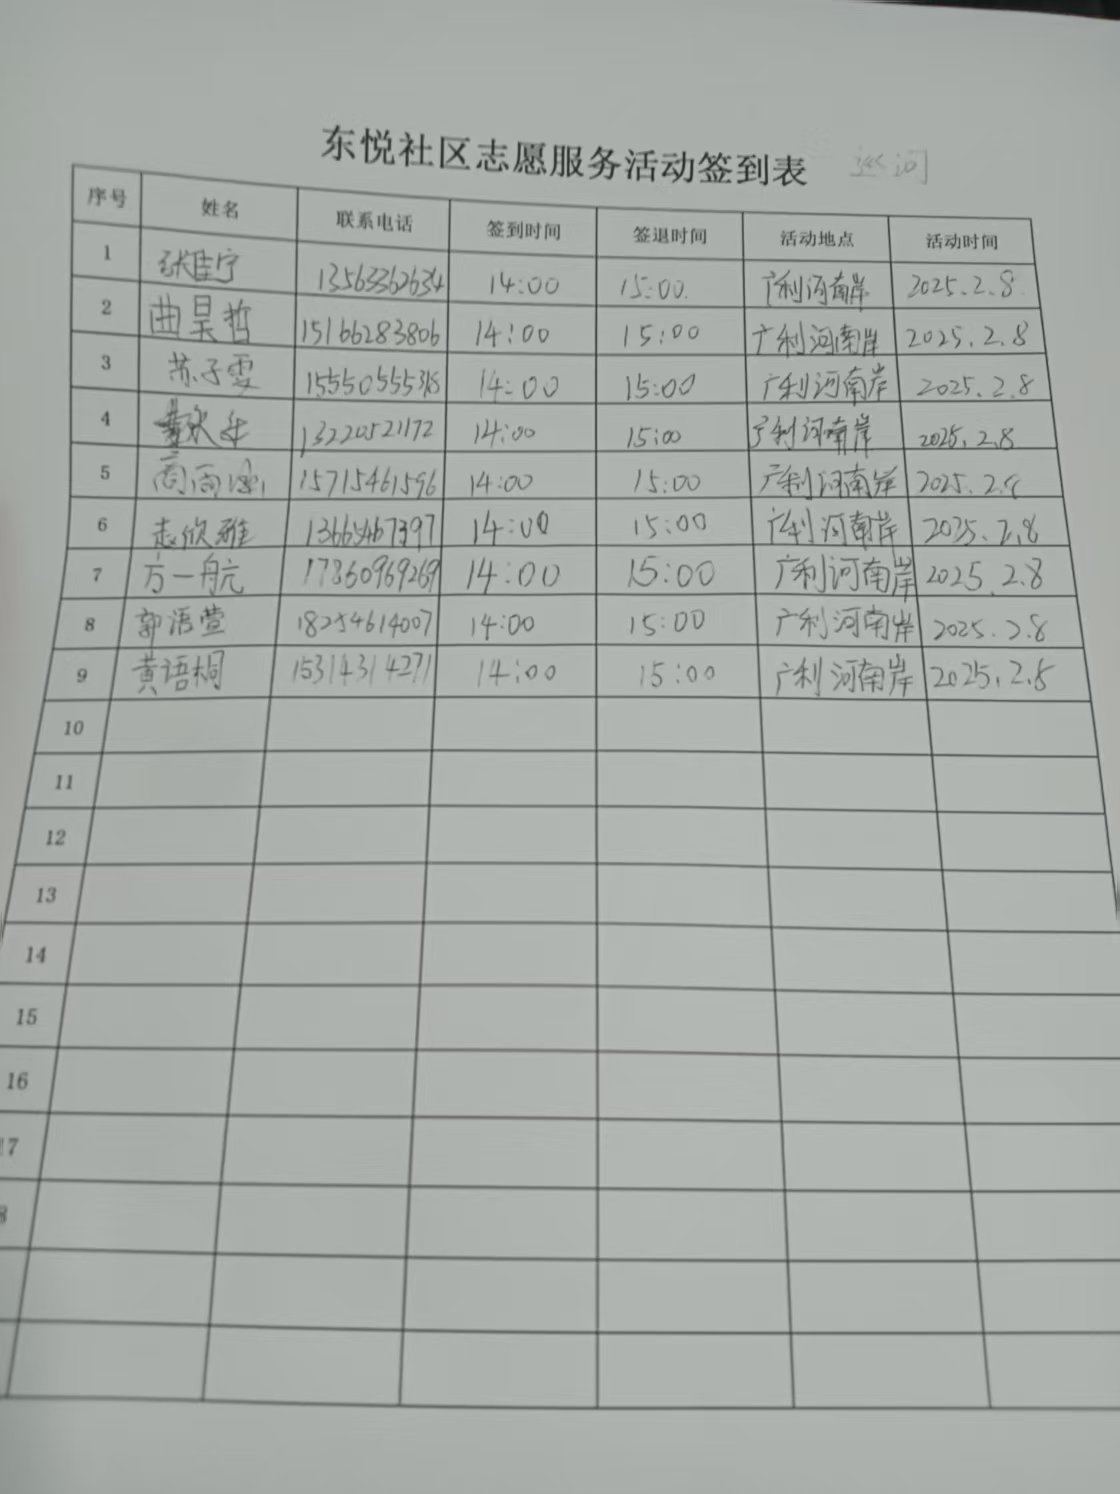 东悦社区志愿服务活动签到表 巡河
序号 姓名 联系电话 签到时间 签退时间 活动地点 活动时间
1 张佳宁 13563362634 14:00 15:00. 广利河南岸 2025.2.8.
2 曲昊哲 15166283806 14:00 15:00 广利河南岸 2025.2.8
3 苏子雯 15550555318 14:00 15:00 广利河南岸 2025.2.8
4 13220521172 14:00 15:00 广利河南岸 2025.2.8
5 高雨涵 15715461596 14:00 15:00 广利河南岸 2025.2.8
6 赵欣雅 13665467397 14:00 15:00 广利河南岸 2025.2.8
7 方一航 17860969269 14:00 15:00 广利河南岸 2025.2.8
8 郭语萱 18254614007 14:00 15:00 广利河南岸 2025.2.8
9 黄语桐 15314314271 14:00 15:00 广利河南岸 2025.2.8
10
11
12
13
14
15
16
17
8